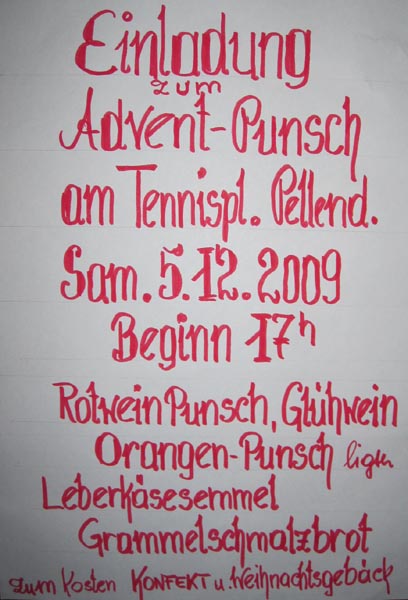 Einladung
zum
Advent-Punsch
am Tennispl. Pellend.
Sam. 5.12.2009
Beginn 17h
Rotwein Punsch, Glühwein
Orangen-Punsch
Leberkäsesemmel
Grammelschmalzbrot
zum Kosten KONFEKT u. Weihnachtsgebäck